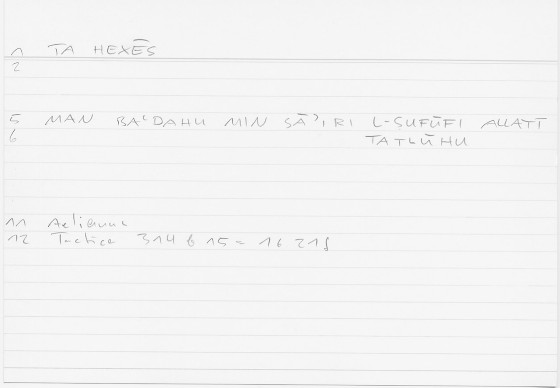 1 TA HEXĒS
2
5 MAN BAʿDAHU MIN SĀʾIRI L-SUFŪFI ALLATĪ
6 TATLŪHU
11 Aelianus
12 Tactica 314 b 15 = 16 218